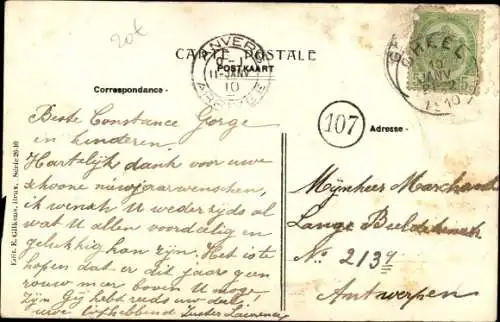 20t
CARTE POSTALE
POSTKAART
ANVERS
11-JANV
10
GHEEL
10
JANV
1910
Correspondance -
107
Adresse -
Beste Constance Gorge
en kinderen.
Hartelijk dank voor uwe
schoone nieuwjaarwenschen,
ik wensch U wederzijds al
wat U allen voordeelig en
gelukkig kan zijn. Het is te
hopen dat er dit jaar geen
rouw meer boven U moge
zijn Gij hebt reeds uw deel!
uwe liefhebbend Zuster Laurence
Mijnheer Marchand
Lange Beeldekens
N° 2139
Antwerpen
Edit. E. Gilkens, Brux. Série 26-10